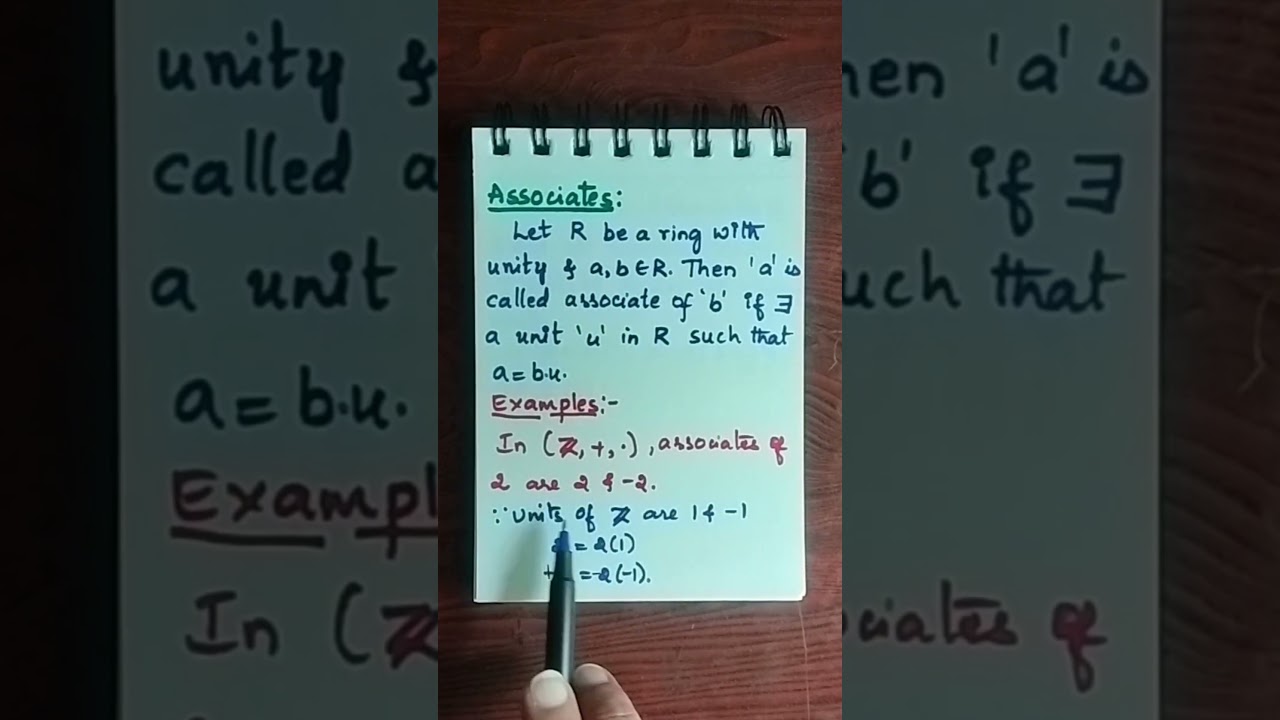 Associates:
Let R be a ring with
unity & a, b ∈ R. Then 'a' is
called associate of 'b' if ∃
a unit 'u' in R such that
a = b.u.
Examples:-
In (ℤ, +, ·), associates of
2 are 2 & -2.
∵ units of ℤ are 1 & -1
= 2(1)
+ = -2(-1).